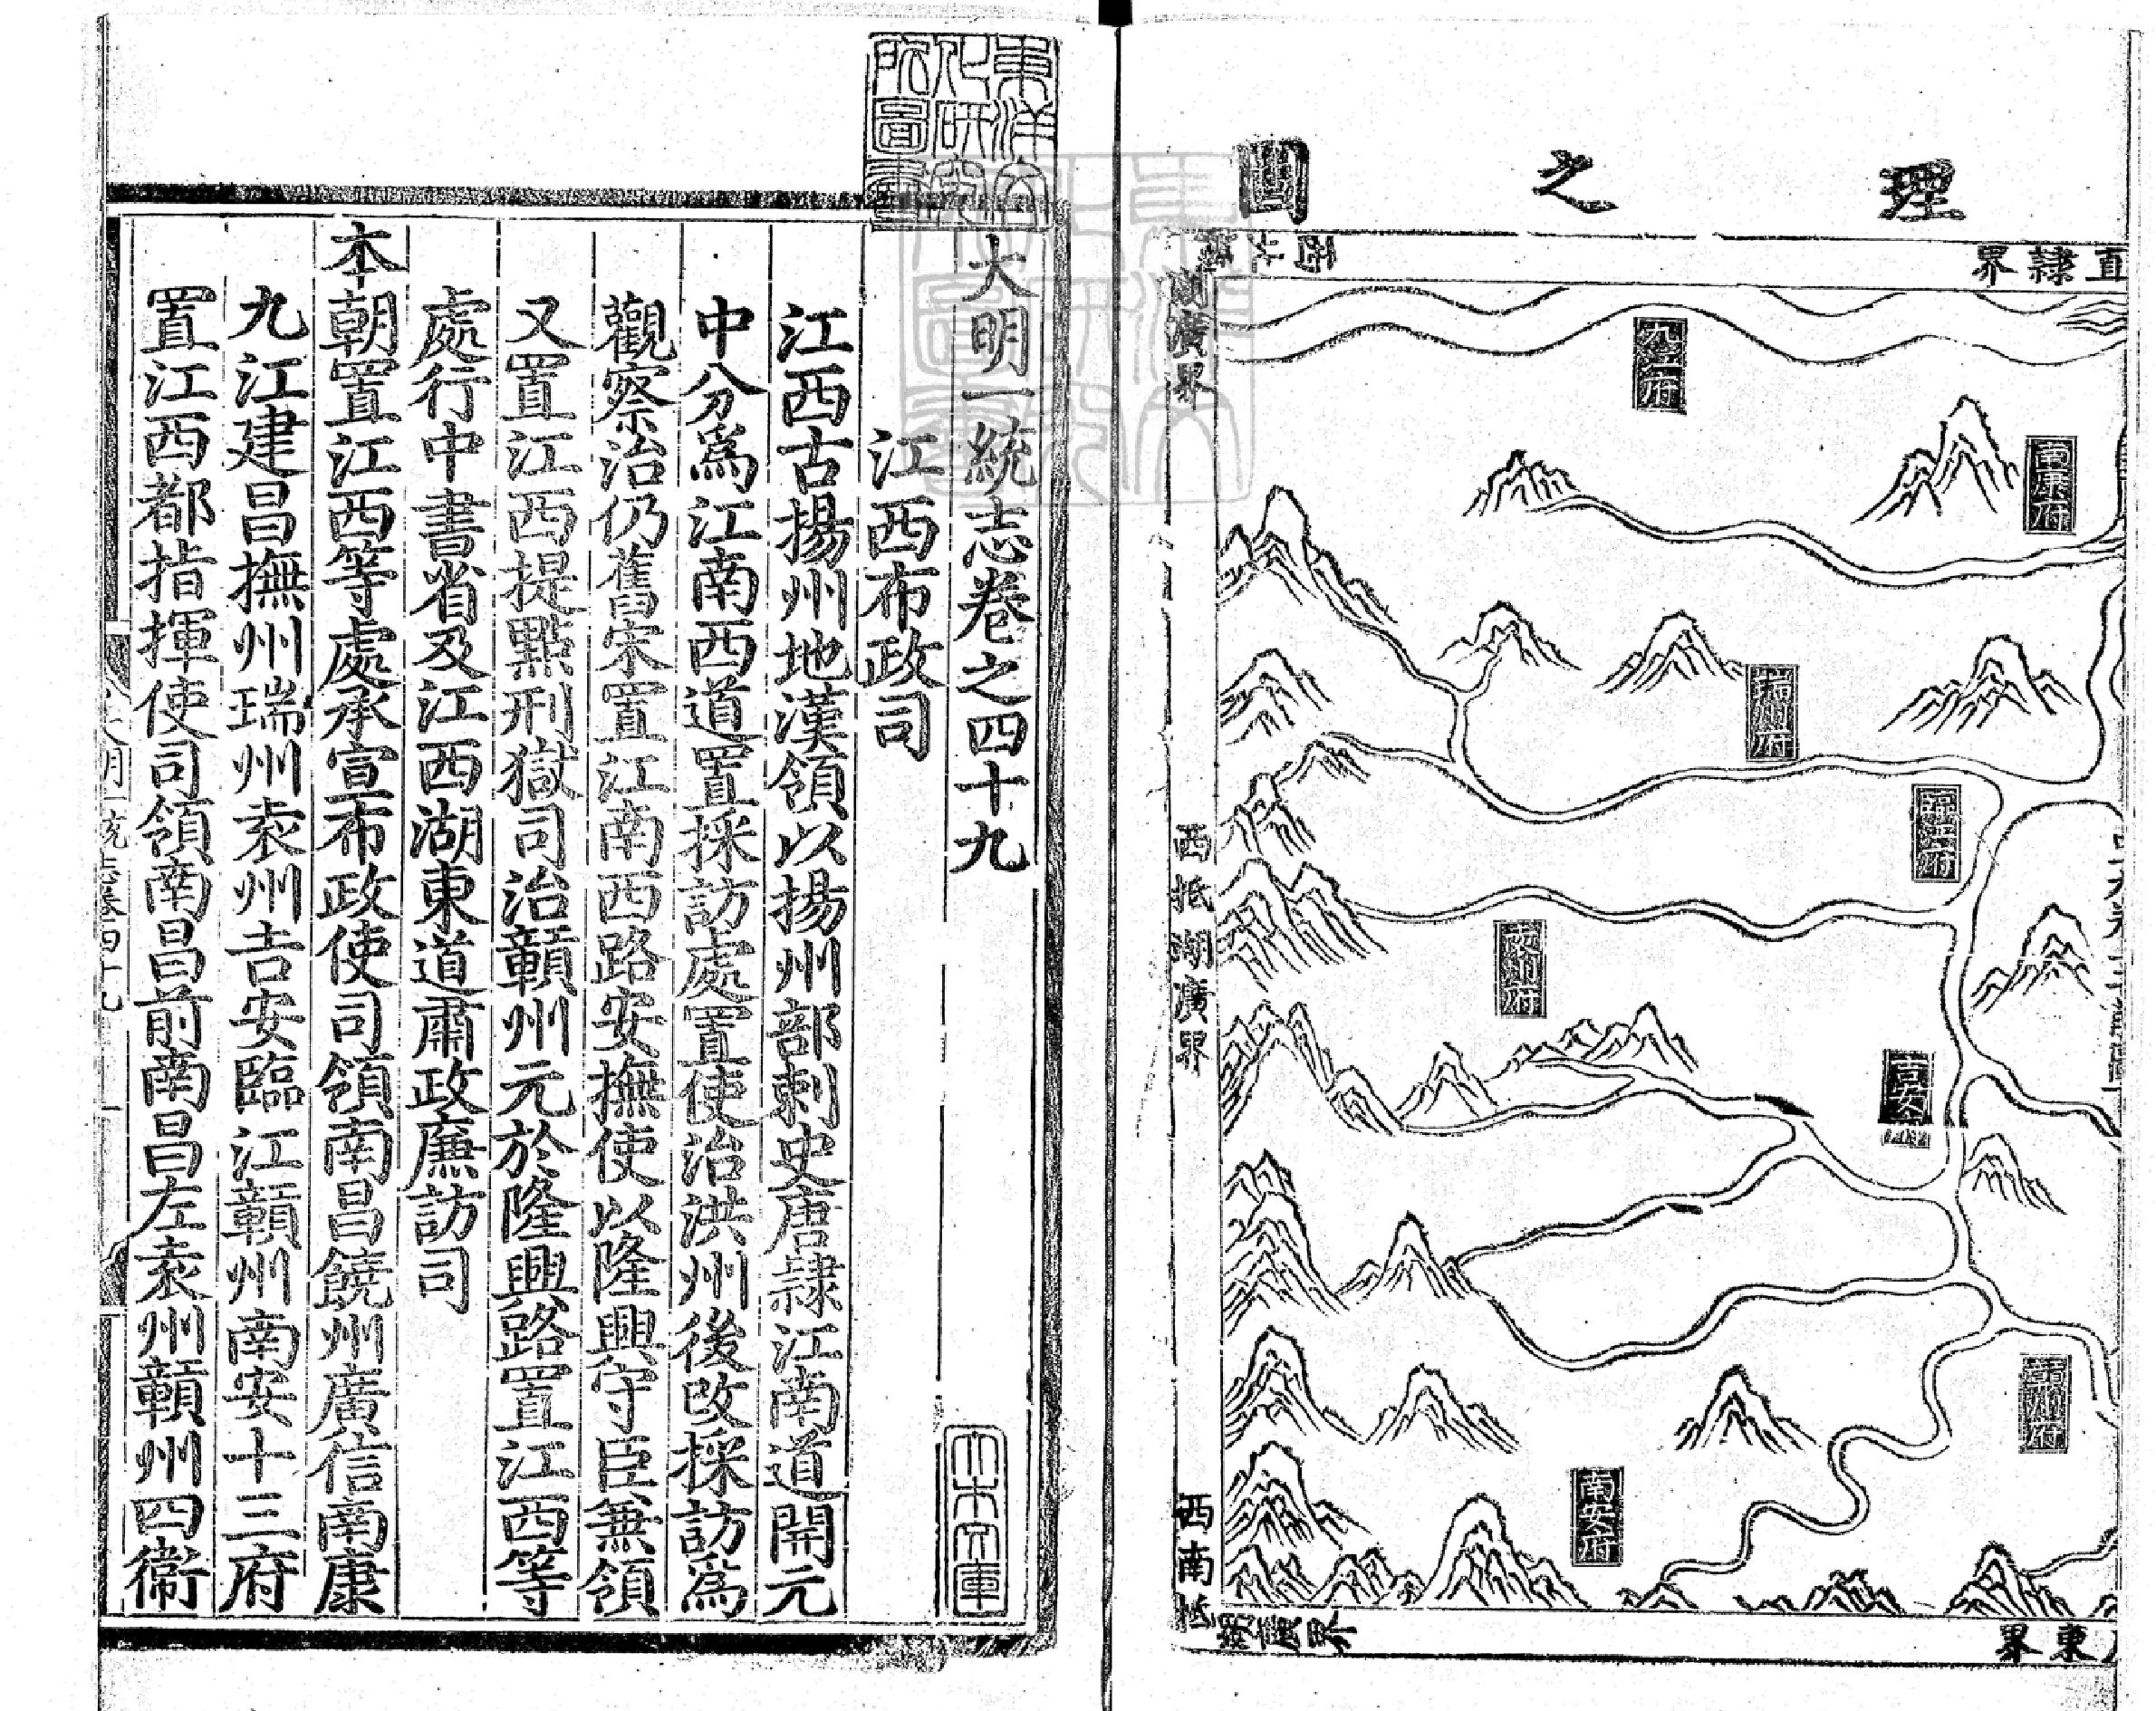 理之圖
直隸界
湖廣界
九江府
南康府
瑞州府
臨江府
袁州府
吉安府
贛州府
南安府
西抵湖廣界
西南抵
東界
大明一統志卷之四十九
江西布政司
江西古揚州地漢領以揚州部刺史唐隸江南道開元
中分爲江南西道置採訪處置使治洪州後改採訪爲
觀察治仍舊宋置江南西路安撫使以隆興守臣兼領
又置江西提點刑獄司治贛州元於隆興路置江西等
處行中書省及江西湖東道肅政廉訪司
本朝置江西等處承宣布政使司領南昌饒州廣信南康
九江建昌撫州瑞州袁州吉安臨江贛州南安十三府
置江西都指揮使司領南昌前南昌左袁州贛州四衞
大明一統志卷四十九
一
東洋文化研究所圖書
大木文庫